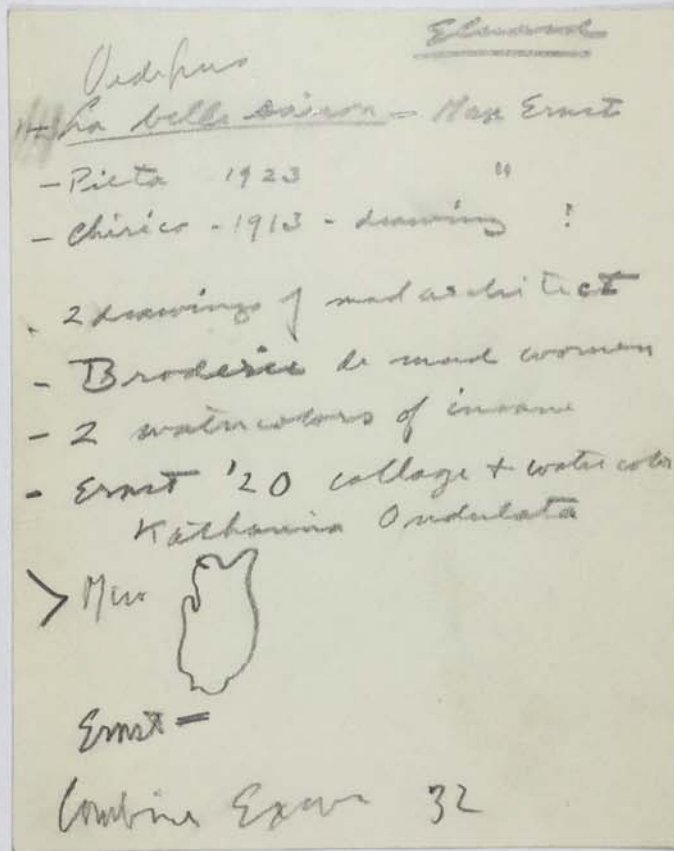 Eluard
Oedipus
La belle saison - Max Ernst
- Pieta 1923 "
- Chirico - 1913 - drawing !
- 2 drawings of mad architect
- Broderie de mad women
- 2 watercolors of insane
- Ernst '20 collage + watercolor
Katharina Ondulata
> Miro
Ernst =
Combine 32